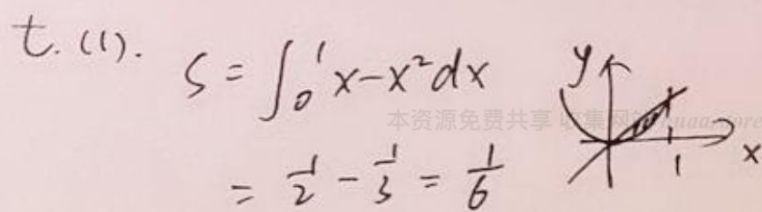 七.(1). S = ∫₀¹ x-x²dx
= 1/2 - 1/3 = 1/6
y
x
1
本资源免费共享 收集网站